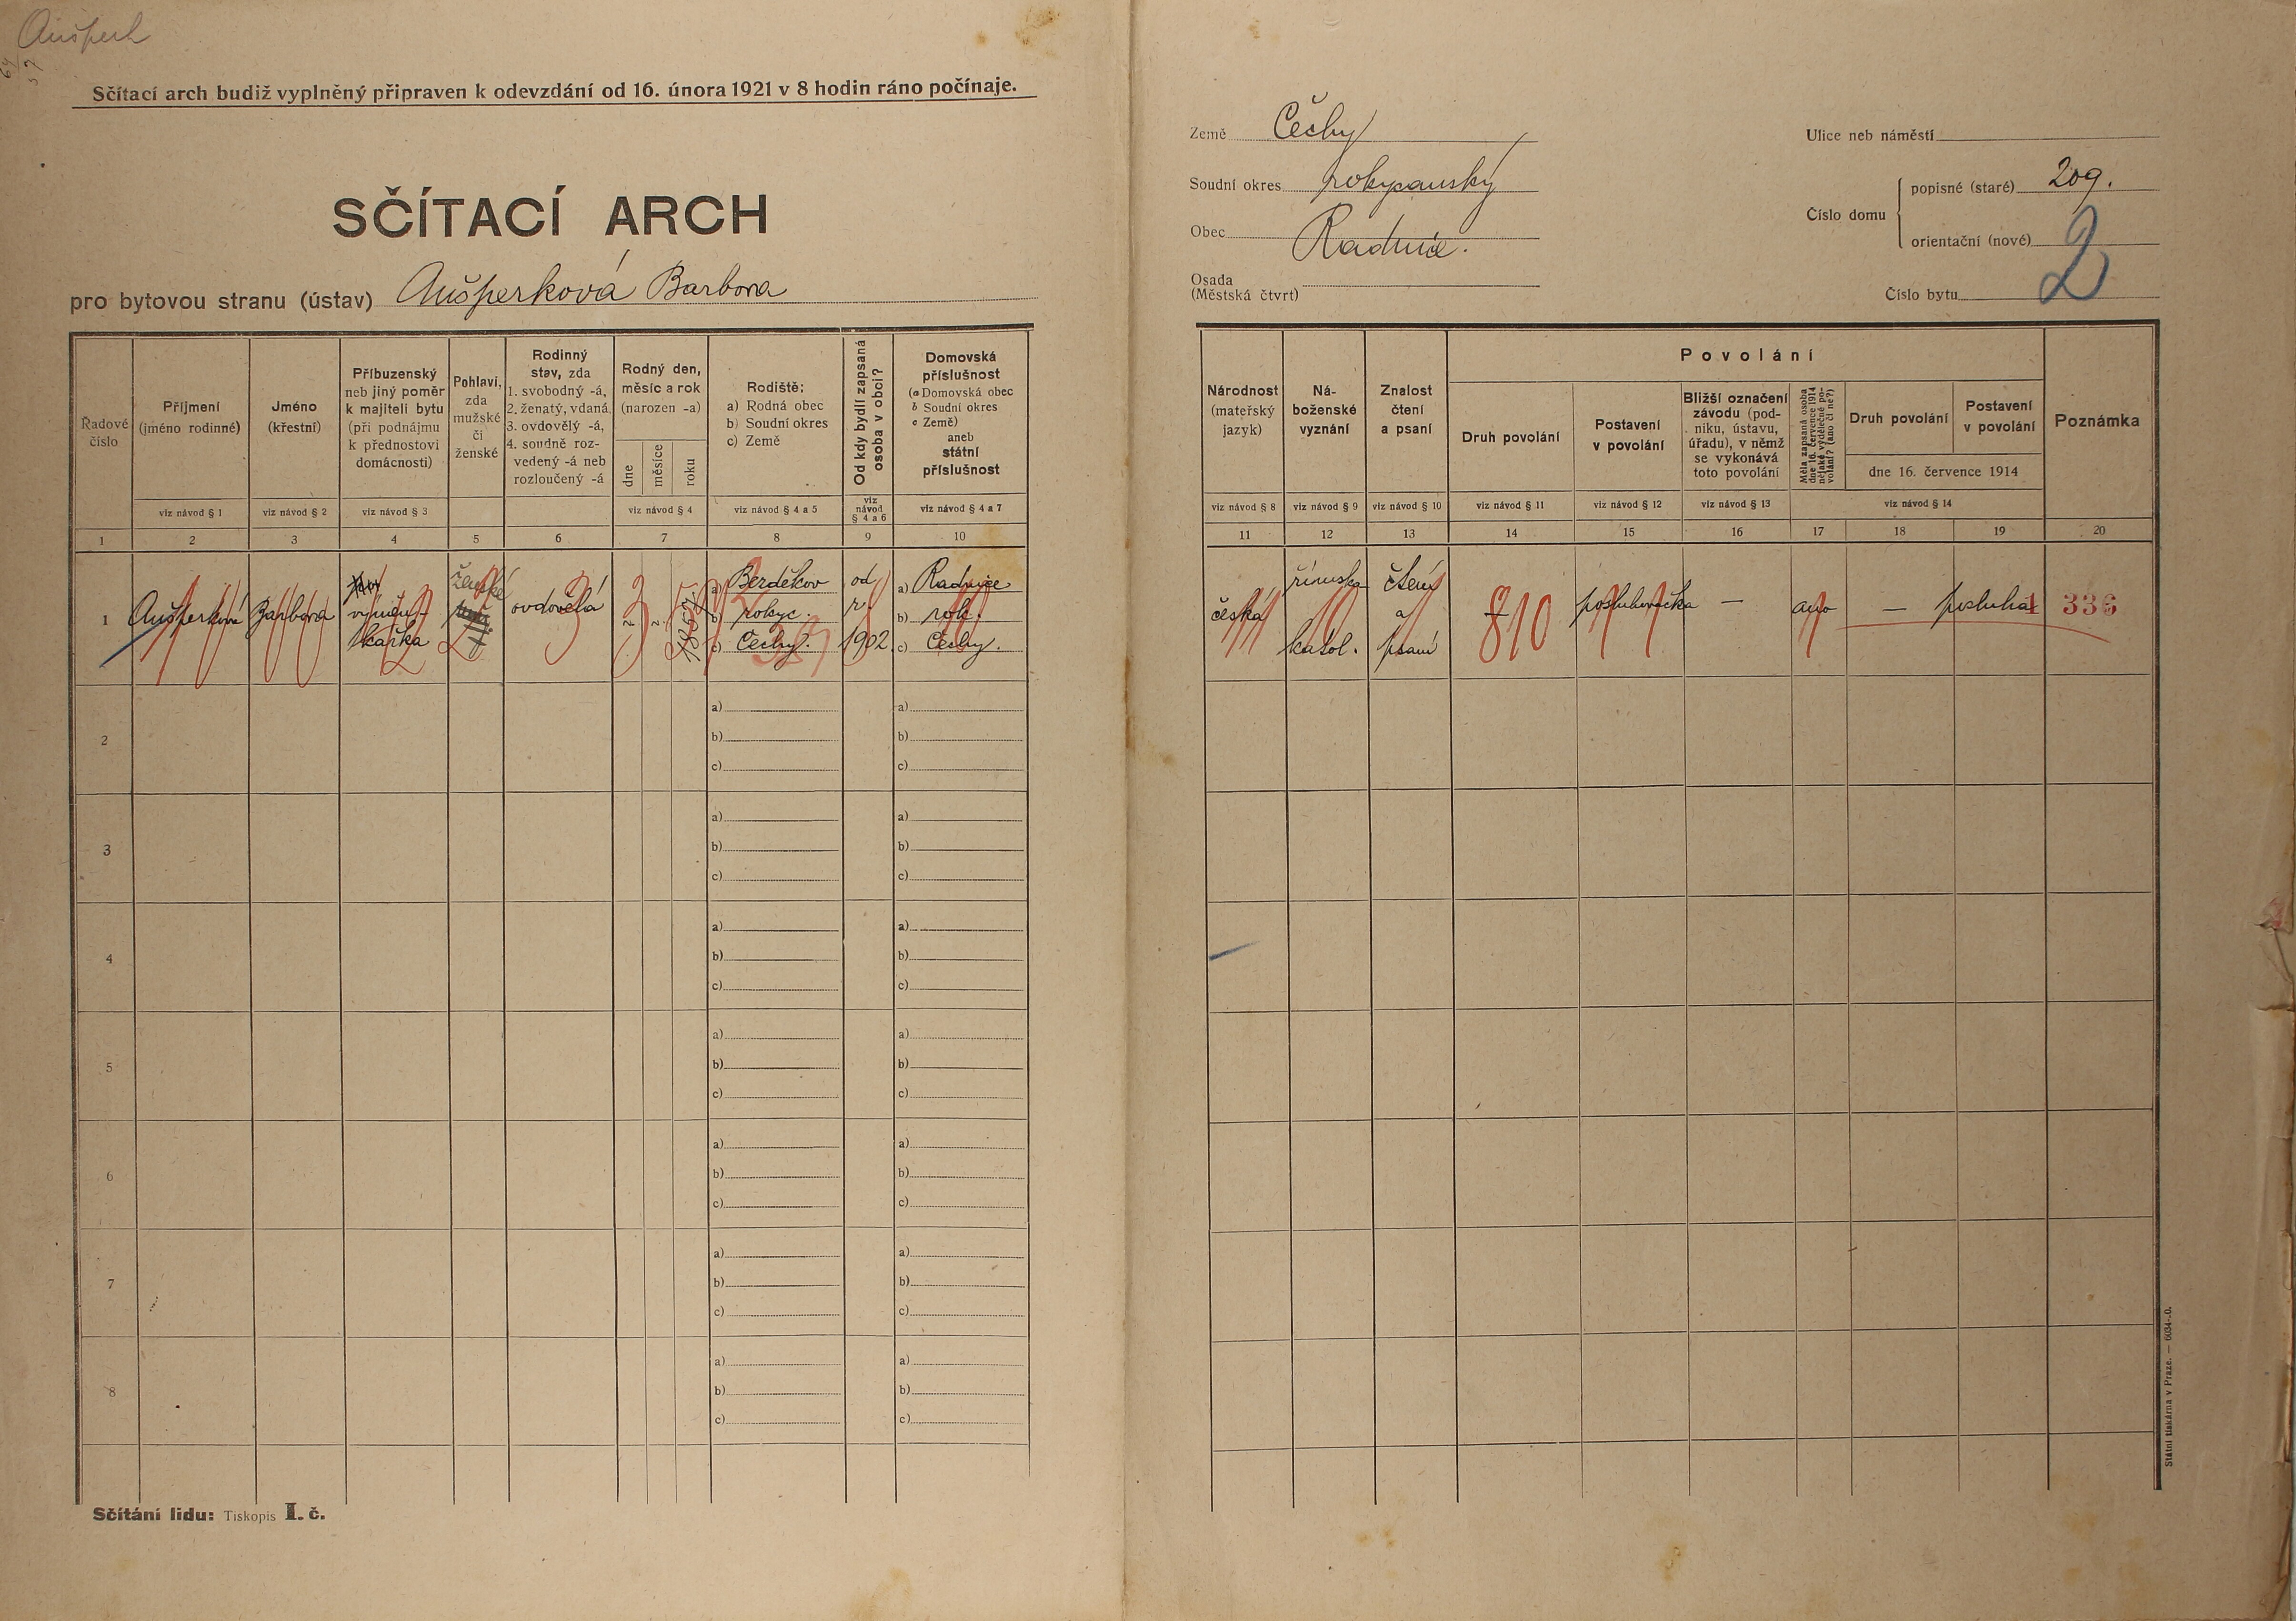 Aušperk
Sčítací arch budiž vyplněný připraven k odevzdání od 16. února 1921 v 8 hodin ráno počínaje.
SČÍTACÍ ARCH
pro bytovou stranu (ústav) Aušperková Barbora
Země Čechy
Soudní okres rokycanský
Obec Radnice.
Osada
(Městská čtvrt)
Ulice neb náměstí
Číslo domu
popisné (staré) 209.
orientační (nové)
Číslo bytu 2
Řadové
číslo
Příjmení
(jméno rodinné)
viz návod § 1
Jméno
(křestní)
viz návod § 2
Příbuzenský
neb jiný poměr
k majiteli bytu
(při podnájmu
k přednostovi
domácnosti)
viz návod § 3
Pohlaví,
zda
mužské
či
ženské
Rodinný
stav, zda
1. svobodný -á,
2. ženatý, vdaná
3. ovdovělý -á,
4. soudně roz-
vedený -á neb
rozloučený -á
Rodný den,
měsíc a rok
(narozen -a)
dne
měsíce
roku
viz návod § 4
Rodiště:
a) Rodná obec
b) Soudní okres
c) Země
viz návod § 4 a 5
Od kdy bydlí zapsaná
osoba v obci?
viz
návod
§ 4 a 6
Domovská
příslušnost
(a Domovská obec
b Soudní okres
c Země)
aneb
státní
příslušnost
viz návod § 4 a 7
Národnost
(mateřský
jazyk)
viz návod § 8
Ná-
boženské
vyznání
viz návod § 9
Znalost
čtení
a psaní
viz návod § 10
Povolání
Druh povolání
viz návod § 11
Postavení
v povolání
viz návod § 12
Bližší označení
závodu (pod-
niku, ústavu,
úřadu), v němž
se vykonává
toto povolání
viz návod § 13
Měla zapsaná osoba
dne 16. července 1914
nějaké výdělečné po-
volání? (ano či ne?)
Druh povolání
Postavení
v povolání
dne 16. července 1914
viz návod § 14
Poznámka
1 2 3 4 5 6 7 8 9 10
11 12 13 14 15 16 17 18 19 20
1
Aušperková
Barbora
výměn-
kářka
ženské
ovdovělá
3
1859
a) Berděkov
b) rokyc.
c) Čechy.
od
r.
1902
a) Radnice
b) rok.
c) Čechy.
česká
římusko
katol.
čtení
a
psaní
810
posluhovačka
—
ano
—
posluha
336
2
a) a)
b) b)
c) c)
3
a) a)
b) b)
c) c)
4
a) a)
b) b)
c) c)
5
a) a)
b) b)
c) c)
6
a) a)
b) b)
c) c)
7
a) a)
b) b)
c) c)
8
a) a)
b) b)
c) c)
Sčítání lidu: Tiskopis I. č.
Státní tiskárna v Praze. — 6034-J.0.